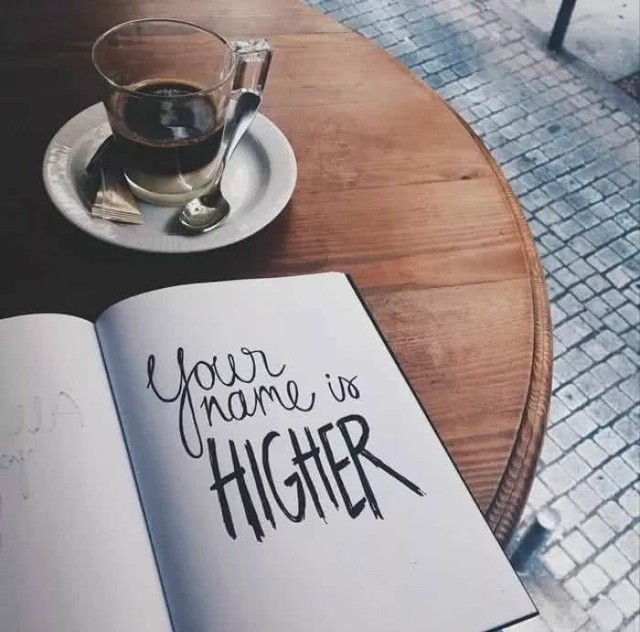 Your
name is
HIGHER